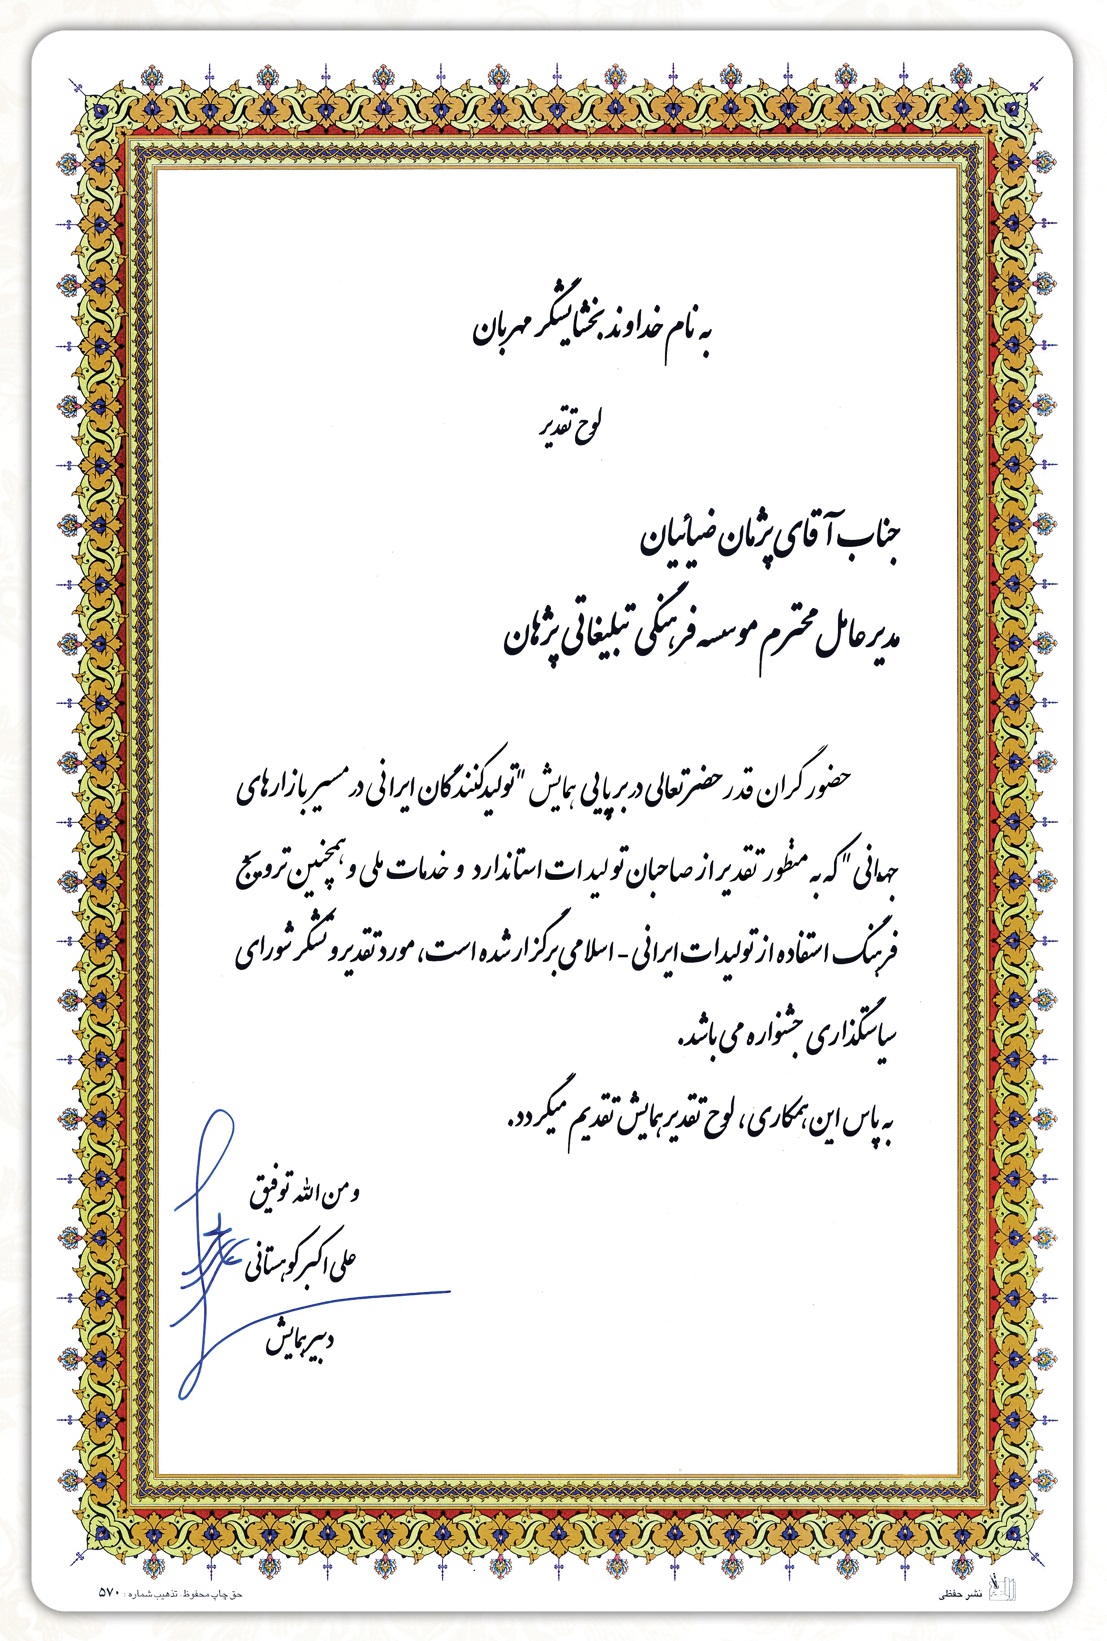 به نام خداوند بخشایشگر مهربان
لوح تقدیر
جناب آقای پژمان ضیائیان
مدیر عامل محترم موسسه فرهنگی تبلیغاتی پژهان
حضور گران قدر حضرتعالی در برپایی همایش "تولیدکنندگان ایرانی در مسیر بازارهای
جهانی" که به منظور تقدیر از صاحبان تولیدات استاندارد و خدمات ملی و همچنین ترویج
فرهنگ استفاده از تولیدات ایرانی - اسلامی برگزار شده است، مورد تقدیر و تشکر شورای
سیاستگذاری جشنواره می باشد.
به پاس این همکاری، لوح تقدیر همایش تقدیم میگردد.
و من الله توفیق
علی اکبر کوهستانی
دبیر همایش
نشر حفظی
حق چاپ محفوظ. تذهیب شماره : ۵۷۰